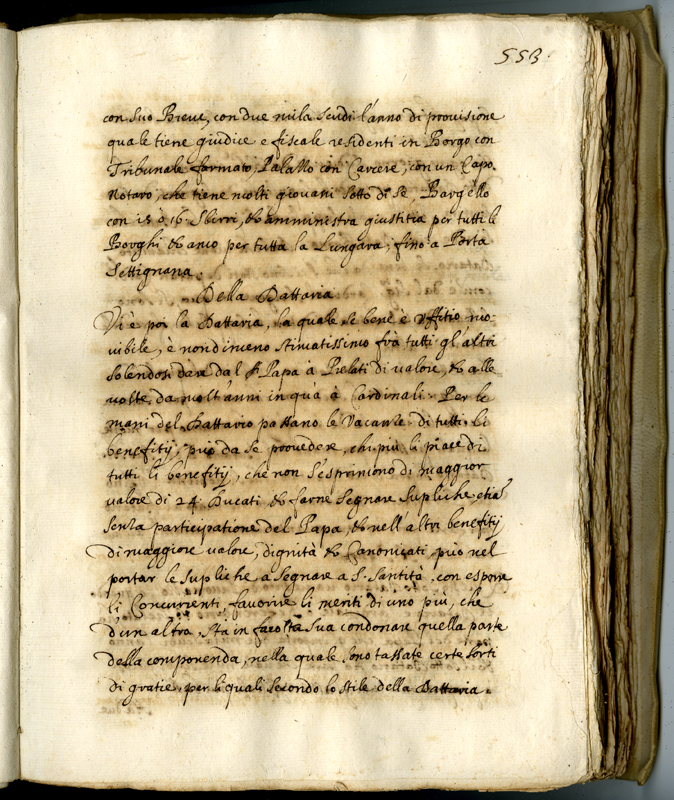 553.
con suo Breve, con due mila scudi l'anno di provisione
quale tiene giudice e fiscale residenti in Borgo con
Tribunale formato, Palazzo con Carcere, con un Capo
Notaro, che tiene molti giovani sotto di se, Bargello
con 15 ò 16 Sbirri, et amministra giustitia per tutti li
Borghi et anco per tutta la Lungara, fino a Porta
Settignana.
Della Dattaria
Vi è poi la Dattaria, la quale se bene è Uffitio mo-
vibile, è nondimeno stimatissimo frà tutti gl'altri
solendosi dare dal Papa à Prelati di valore, et alle
volte da molt'anni in quà à Cardinali. Per le
mani del Dattario passano le Vacanze di tutti li
benefitij, può da se provedere, chi più li piace di
tutti li benefitij, che non s'esprimono di maggior
valore di 24 Ducati, et farne segnare supliche, etiā
senza participatione del Papa, et nell'altri benefitij
di maggiore valore, dignità et Canonicati, può nel
portar le supliche a segnare a S. Santità, con esporre
li Concurrenti, favorire li meriti di uno più, che
d'un altro, Stà in facoltà sua condonare quella parte
della componenda, nella quale sono tassate certe sorti
di gratie, per li quali secondo lo stile della Dattaria.